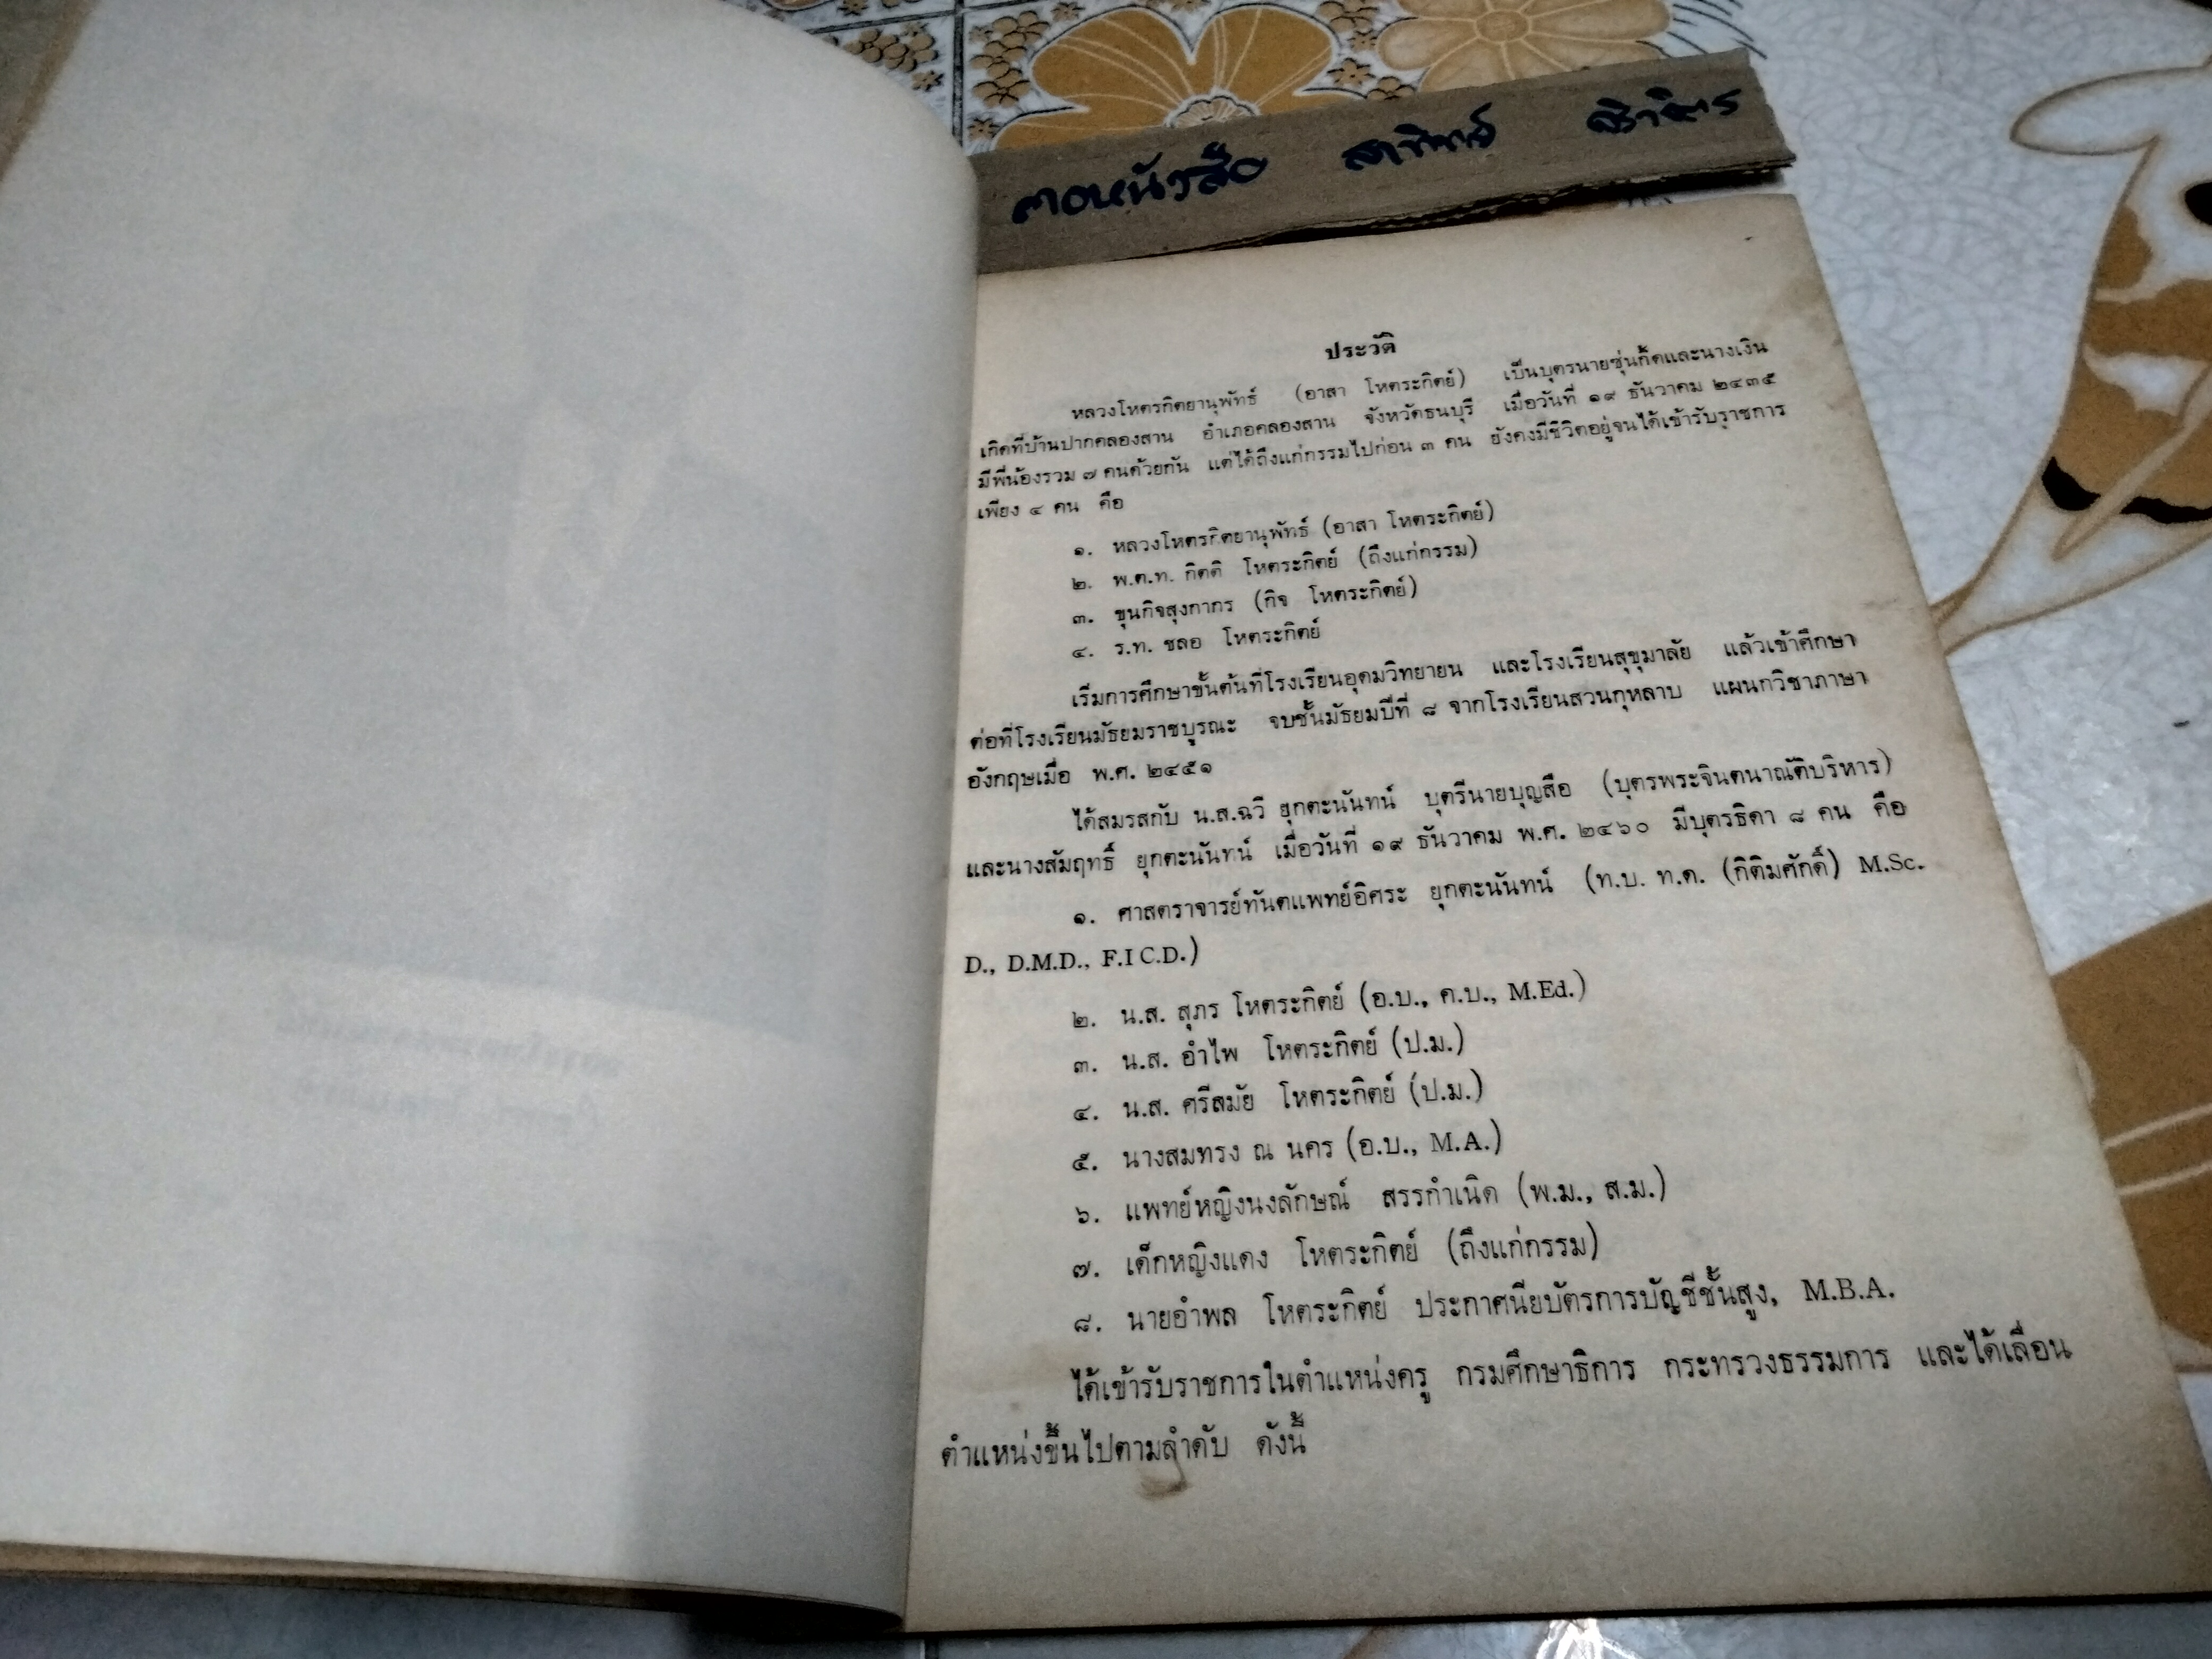 ประวัติ
หลวงโหตรกิตยานุพัทธ์ (อาสา โหตระกิตย์) เป็นบุตรนายซุ่นกี้ดและนางเงิน
เกิดที่บ้านปากคลองสาน อำเภอคลองสาน จังหวัดธนบุรี เมื่อวันที่ ๑๙ ธันวาคม ๒๔๓๕
มีพี่น้องรวม ๗ คนด้วยกัน แต่ได้ถึงแก่กรรมไปก่อน ๓ คน ยังคงมีชีวิตอยู่จนได้เข้ารับราชการ
เพียง ๔ คน คือ
๑. หลวงโหตรกิตยานุพัทธ์ (อาสา โหตระกิตย์)
๒. พ.ต.ท. กิตติ โหตระกิตย์ (ถึงแก่กรรม)
๓. ขุนกิจสุงกากร (กิจ โหตระกิตย์)
๔. ร.ท. ชลอ โหตระกิตย์
เริ่มการศึกษาขั้นต้นที่โรงเรียนอุดมวิทยายน และโรงเรียนสุขุมาลัย แล้วเข้าศึกษา
ต่อที่โรงเรียนมัธยมราชบูรณะ จบชั้นมัธยมปีที่ ๘ จากโรงเรียนสวนกุหลาบ แผนกวิชาภาษา
อังกฤษเมื่อ พ.ศ. ๒๔๕๑
ได้สมรสกับ น.ส.ฉวี ยุกตะนันทน์ บุตรีนายบุญสือ (บุตรพระจินดนาณัติบริหาร)
และนางสัมฤทธิ์ ยุกตะนันทน์ เมื่อวันที่ ๑๙ ธันวาคม พ.ศ. ๒๔๖๐ มีบุตรธิดา ๘ คน คือ
๑. ศาสตราจารย์ทันตแพทย์อิศระ ยุกตะนันทน์ (ท.บ. ท.ด. (กิติมศักดิ์) M.Sc.
D., D.M.D., F.I C.D.)
๒. น.ส. สุภร โหตระกิตย์ (อ.บ., ค.บ., M.Ed.)
๓. น.ส. อำไพ โหตระกิตย์ (ป.ม.)
๔. น.ส. ศรีสมัย โหตระกิตย์ (ป.ม.)
๕. นางสมทรง ณ นคร (อ.บ., M.A.)
๖. แพทย์หญิงนงลักษณ์ สรรกำเนิด (พ.ม., ส.ม.)
๗. เด็กหญิงแดง โหตระกิตย์ (ถึงแก่กรรม)
๘. นายอำพล โหตระกิตย์ ประกาศนียบัตรการบัญชีชั้นสูง, M.B.A.
ได้เข้ารับราชการในตำแหน่งครู กรมศึกษาธิการ กระทรวงธรรมการ และได้เลื่อน
ตำแหน่งขึ้นไปตามลำดับ ดังนี้